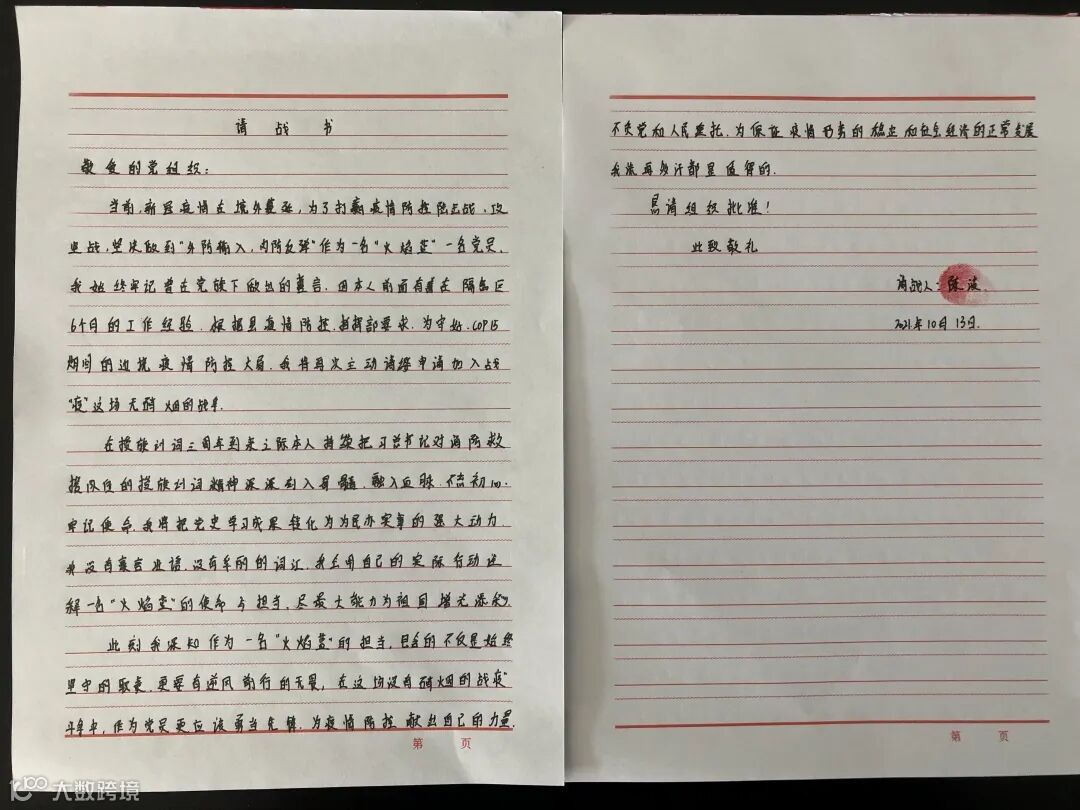 请战书
敬爱的党组织：
当前，新冠疫情在境外蔓延，为了打赢疫情防控阻击战、攻
坚战，坚决做到“外防输入，内防反弹”作为一名“火焰蓝”一名党员，
我始终牢记曾在党旗下做出的宣言。因本人前面有着在隔离区
6个月的工作经验，根据县疫情防控指挥部要求，为守好COP15
期间的边境疫情防控大局，我将再次主动请缨申请加入战
“疫”这场无硝烟的战争。
在授旗训词三周年到来之际本人持续把习总书记对消防救
援队伍的授旗训词精神深深刻入骨髓，融入血脉，不忘初心，
牢记使命，我将把党史学习成果转化为为民办实事的强大动力，
我没有豪言壮语，没有华丽的词汇，我会用自己的实际行动诠
释一名“火焰蓝”的使命与担当，尽最大能力为祖国增光添彩。
此刻我深知作为一名“火焰蓝”的担当，包含的不仅是始终
坚守的职责，更要有逆风前行的无畏，在这场没有硝烟的战“疫”
斗争中，作为党员更应该勇当先锋，为疫情防控献出自己的力量，
不负党和人民重托，为保证疫情形势的稳定和社会经济的正常发展
我流再多汗都是值得的。
恳请组织批准！
此致敬礼
请战人：陈波
2021年10月13日.
第 页
第 页
大数跨境